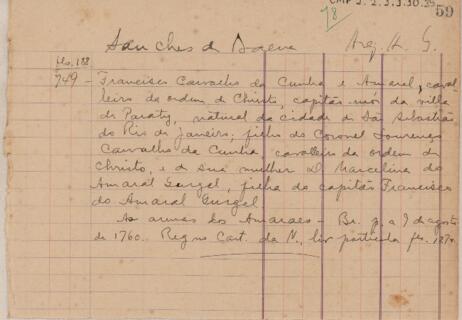 CMP 2.2.3.3.30.39
78
59
Sanches de Baena Arq. H. G.
fls. 188
749 - Francisco Carvalho da Cunha e Amaral, caval-
leiro da ordem de Christo, capitão-mór da villa
de Paraty, natural da cidade de São Sebastião
do Rio de Janeiro; filho do Coronel Lourenço
Carvalho da Cunha cavalleiro da ordem de
Christo, e de sua mulher D. Marcelina do
Amaral Gurgel, filha do capitão Francisco
do Amaral Gurgel
As armas dos Amaraes - Br. p. a 9 de agosto
de 1760. Reg. no Cart. da N., liv. particular fls. 187